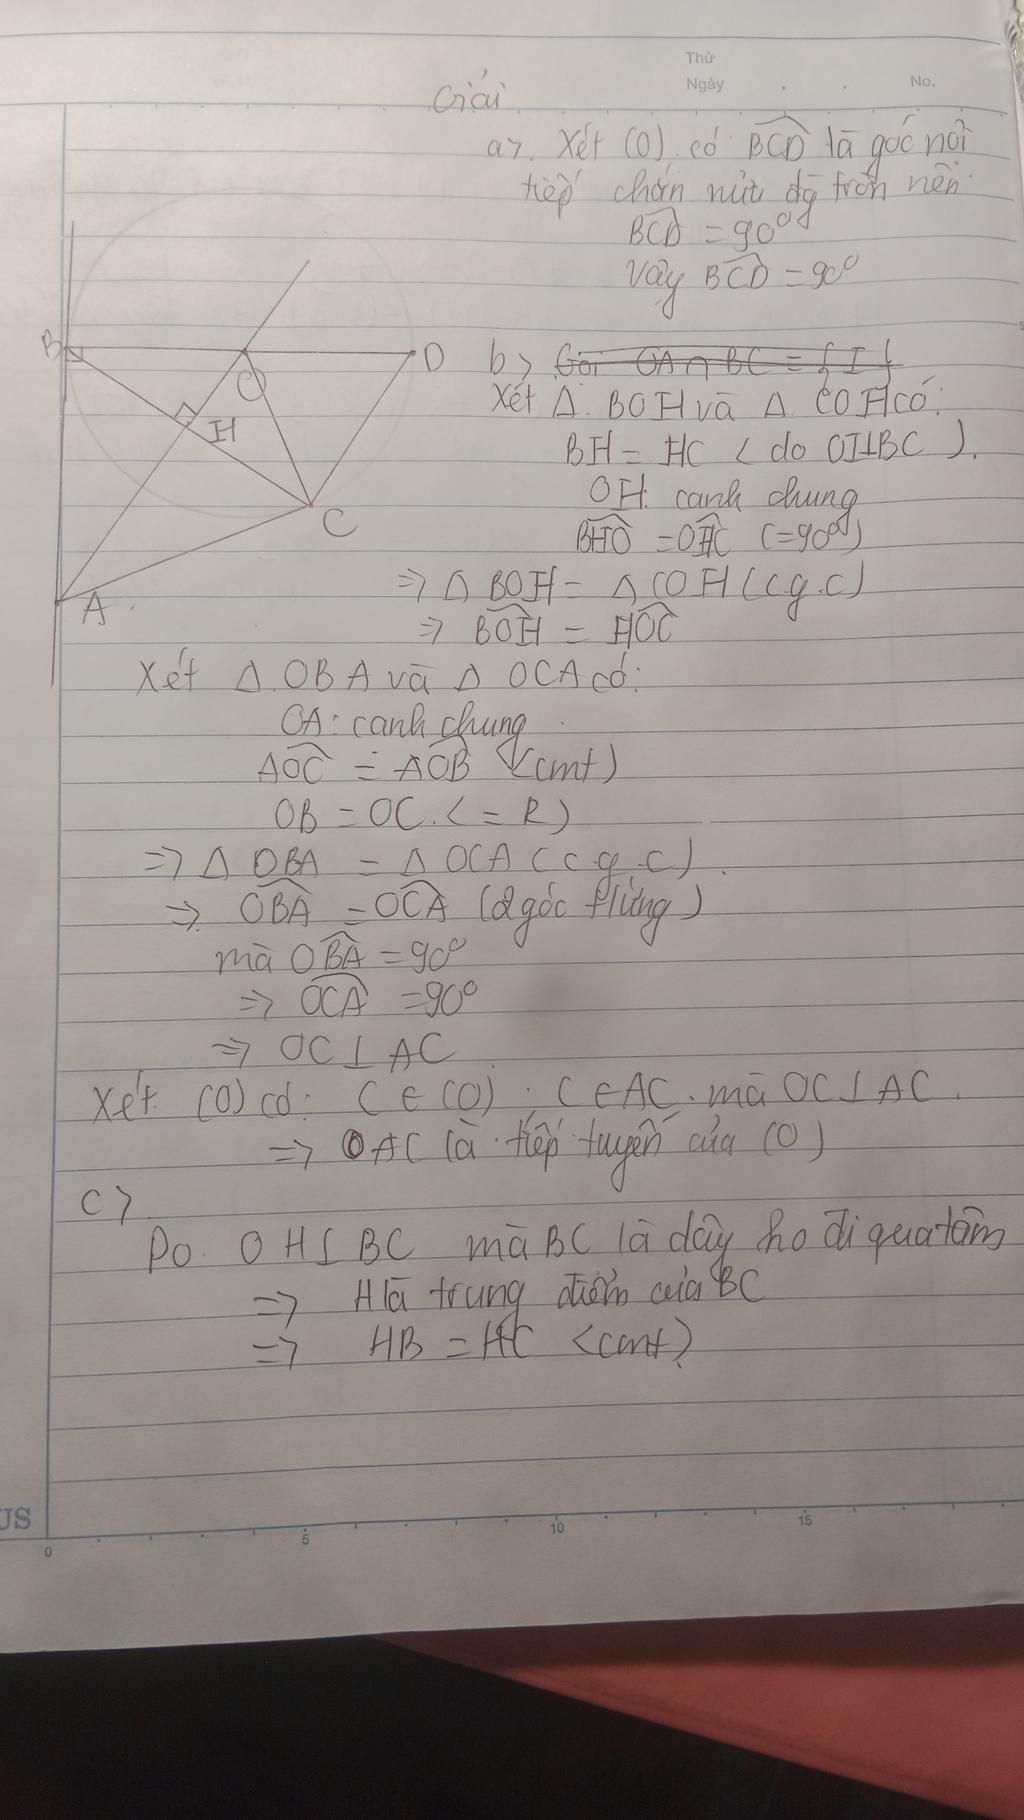 Thứ
Ngày
No.
Giải
a>. Xét (O) có BCD là góc nội
tiếp chắn nửa đg tròn nên
BCD = 90°
Vậy BCD = 90°
B
O
D
H
C
A
b> Gọi OA ∩ BC = { I }
Xét Δ BOH và Δ COH có:
BH = HC < do OI⊥BC ).
OH: cạnh chung
BHO = OHC (=90°)
=> Δ BOH = Δ COH (c g.c)
=> BOH = HOC
Xét Δ OBA và Δ OCA có:
OA: cạnh chung
AOC = AOB <cmt)
OB = OC. < = R)
=> Δ OBA = Δ OCA (c g.c)
=> OBA = OCA (2 góc tứng)
mà OBA = 90°
=> OCA = 90°
=> OC ⊥ AC
Xét (O) có: C ∈ (O) ; C ∈ AC. mà OC ⊥ AC.
=> AC là tiếp tuyến của (O)
c>
Do OH ⊥ BC mà BC là dây ko đi qua tâm
=> H là trung điểm của BC
=> HB = HC <cmt)
US
0 5 10 15